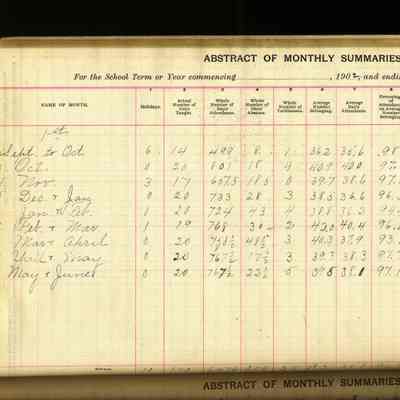 ABSTRACT OF MONTHLY SUMMARIES
For the School Term or Year commencing , 1902, and endi
1 2 3 4 5 6 7 8
NAME OF MONTH. Holidays. Actual Number of Days Taught. Whole Number of Days' Attendance. Whole Number of Days' Absence. Whole Number of Tardinesses. Average Number Belonging. Average Daily Attendance. Percentage of Attendance on Average Number Belonging
1st
Sept. to Oct 6 14 499 8 1 36.2 35.6 .98
Oct. 0 20 801 18 4 40.9 40.0 97.
Nov. 3 17 657.5 18.5 0 39.7 38.6 97.
Dec. + Jan 0 20 733 28 3 38.5 36.6 96.
Jan. 1 20 724 43 4 38.8 36.2
Feb + Mar 1 19 768 30 2 42.0 40.4 96.
Mar + April 0 20 758½ 48½ 3 40.3 37.9 93.
April + May 0 20 767½ 17½ 3 39.7 38.3 97.
May + June 0 20 767½ 22½ 5 39.5 38.1 97.
ABSTRACT OF MONTHLY SUMMARIES